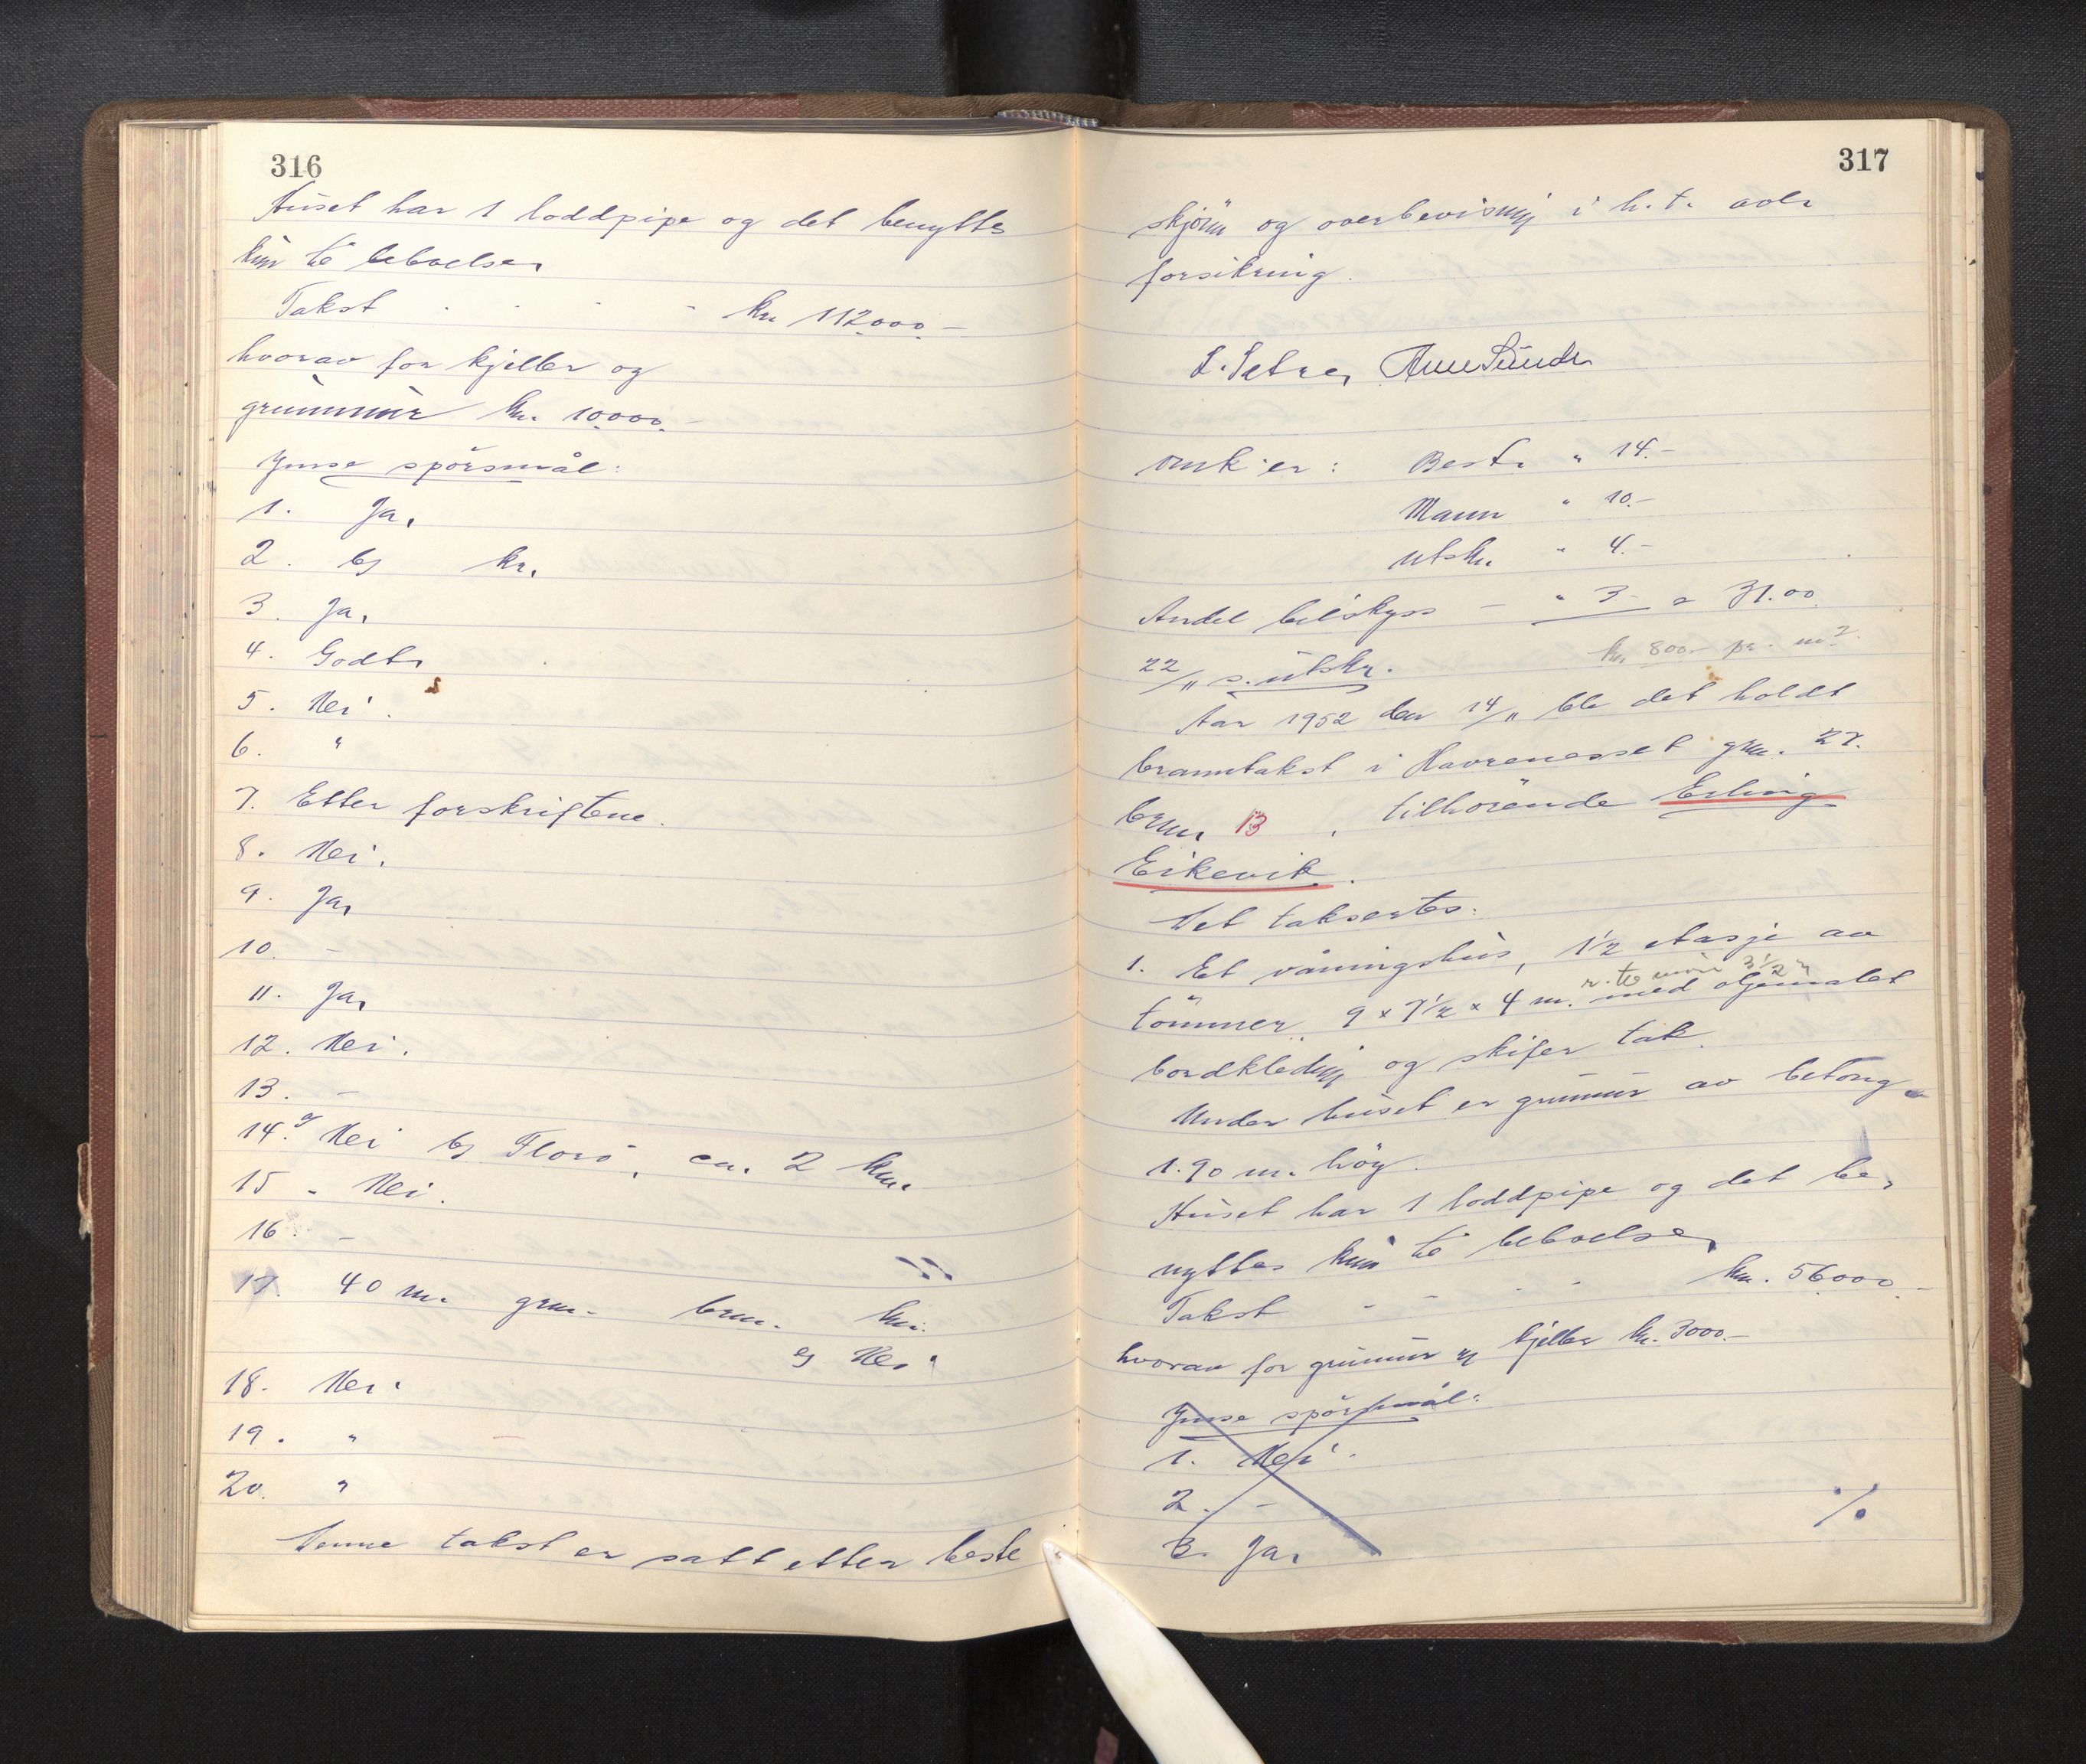 316
Huset har 1 loddpipe og det benyttes
kun til beboelse.
Takst - - - - kr. 112.000.-
hvorav for kjeller og
grunnmur kr. 10.000.-
Ymse spörsmål:
1. Ja.
2. b) kr.
3. Ja.
4. Godt.
5. Nei.
6. "
7. Etter forskriftene.
8. Nei.
9. Ja.
10. -
11. Ja.
12. Nei.
13. -
14. a) Nei b) Florö, ca. 2 km.
15. Nei.
16. -
17. 40 m. gnr. bnr. Nei.
c) Nei.
18. Nei.
19. "
20. "
Denne takst er satt etter beste
317
skjönn og overbevisning i h.t. avls
forsikring.
S. Setre, Arne Sunde
Omk.er: Best. " 14.-
Mann " 10.-
utskr. " 4.-
Andel bilskyss - " 3.- = 31.00
22/11 s. utskr.
kr 800.- pr. m2.
År 1952 den 14/11 ble det holdt
branntakst i Havrenesset gnr. 27.
bnr. 13, tilhörende Erling
Eikevik.
Det taksertes:
1. Et våningshus, 1 1/2 etasje av
3 1/2"
tömmer 9 x 7 1/2 x 4 m. med oljemalet
bordkledning og skifer tak.
Under huset er grunnmur av betong
1.90 m. höy.
Huset har 1 loddpipe og det be-
nyttes kun til beboelse.
Takst - - - - kr. 56.000.-
hvorav for grunnmur og kjeller kr. 3000.-
Ymse spörsmål:
1. Nei.
2. -
3. Ja.
%